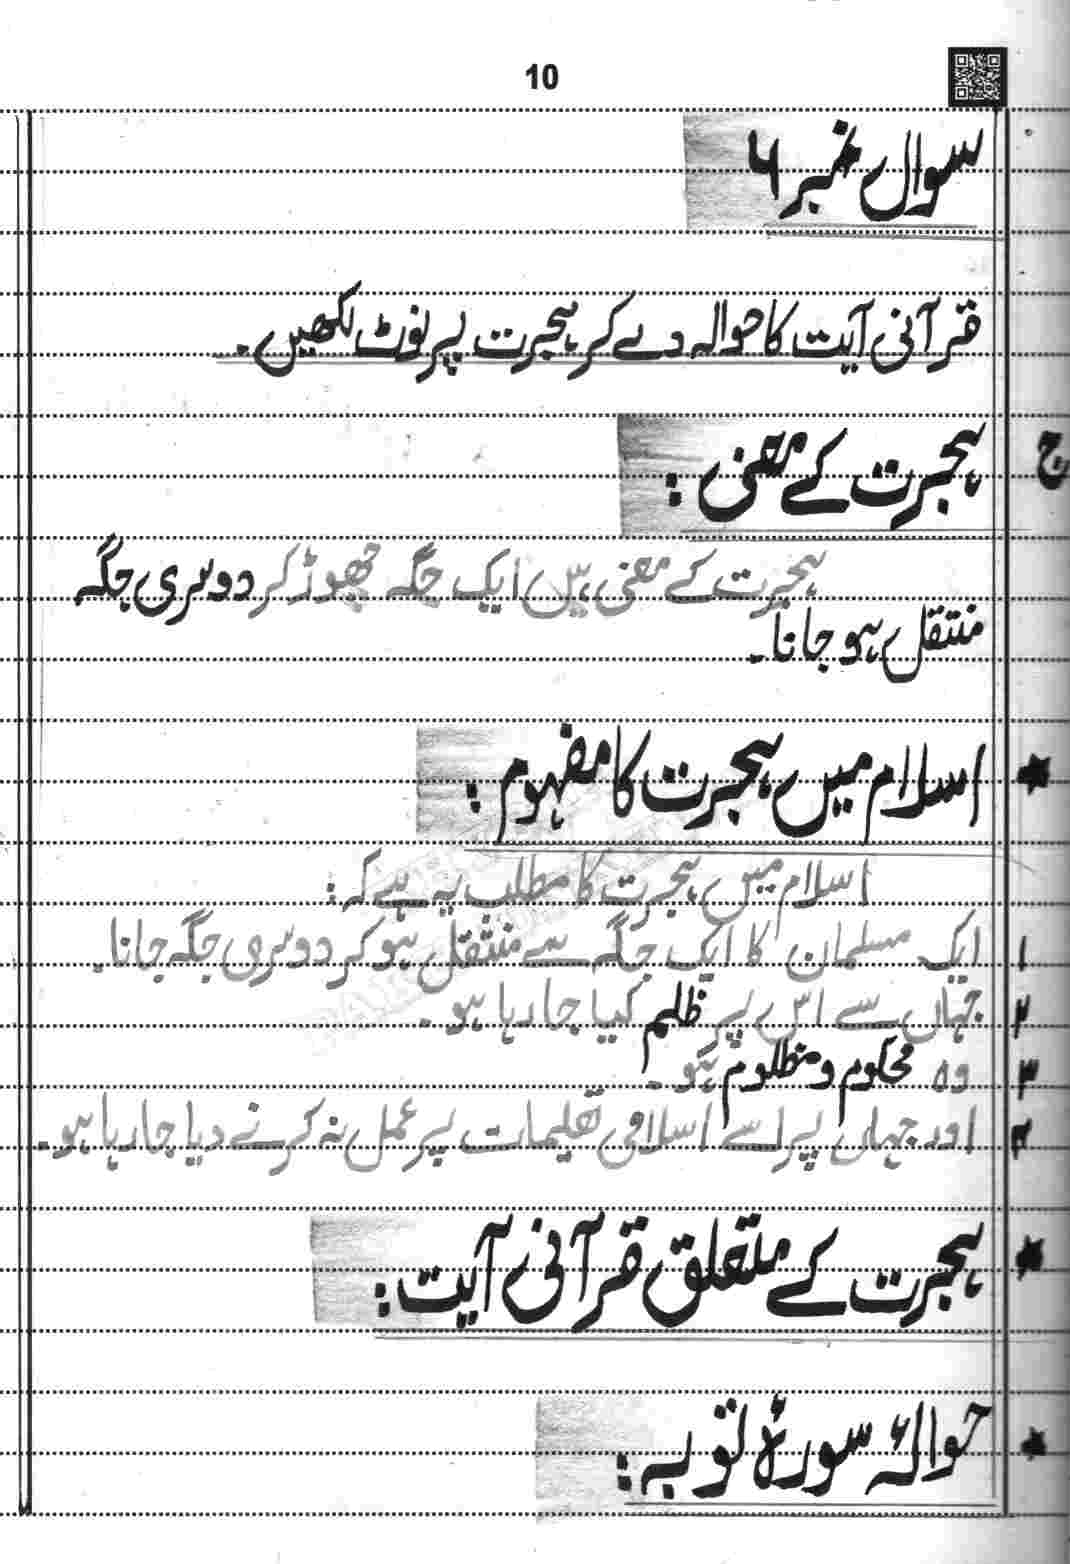 10
سوال نمبر ۶
قرآنی آیت کا حوالہ دے کر ہجرت پر نوٹ لکھیں۔
ج
ہجرت کے معنی :
ہجرت کے معنی ہیں ایک جگہ چھوڑ کر دوسری جگہ
منتقل ہو جانا۔
★ اسلام میں ہجرت کا مفہوم :
اسلام میں ہجرت کا مطلب یہ ہے کہ :
۱ ایک مسلمان کا ایک جگہ سے منتقل ہو کر دوسری جگہ جانا۔
۲ جہاں سے اس پر ظلم کیا جا رہا ہو۔
۳ وہ محکوم و مظلوم ہو۔
۴ اور جہاں پر اسے اسلامی تعلیمات پر عمل نہ کرنے دیا جا رہا ہو۔
★ ہجرت کے متعلق قرآنی آیت :
★ حوالۂ سورۂ توبہ :